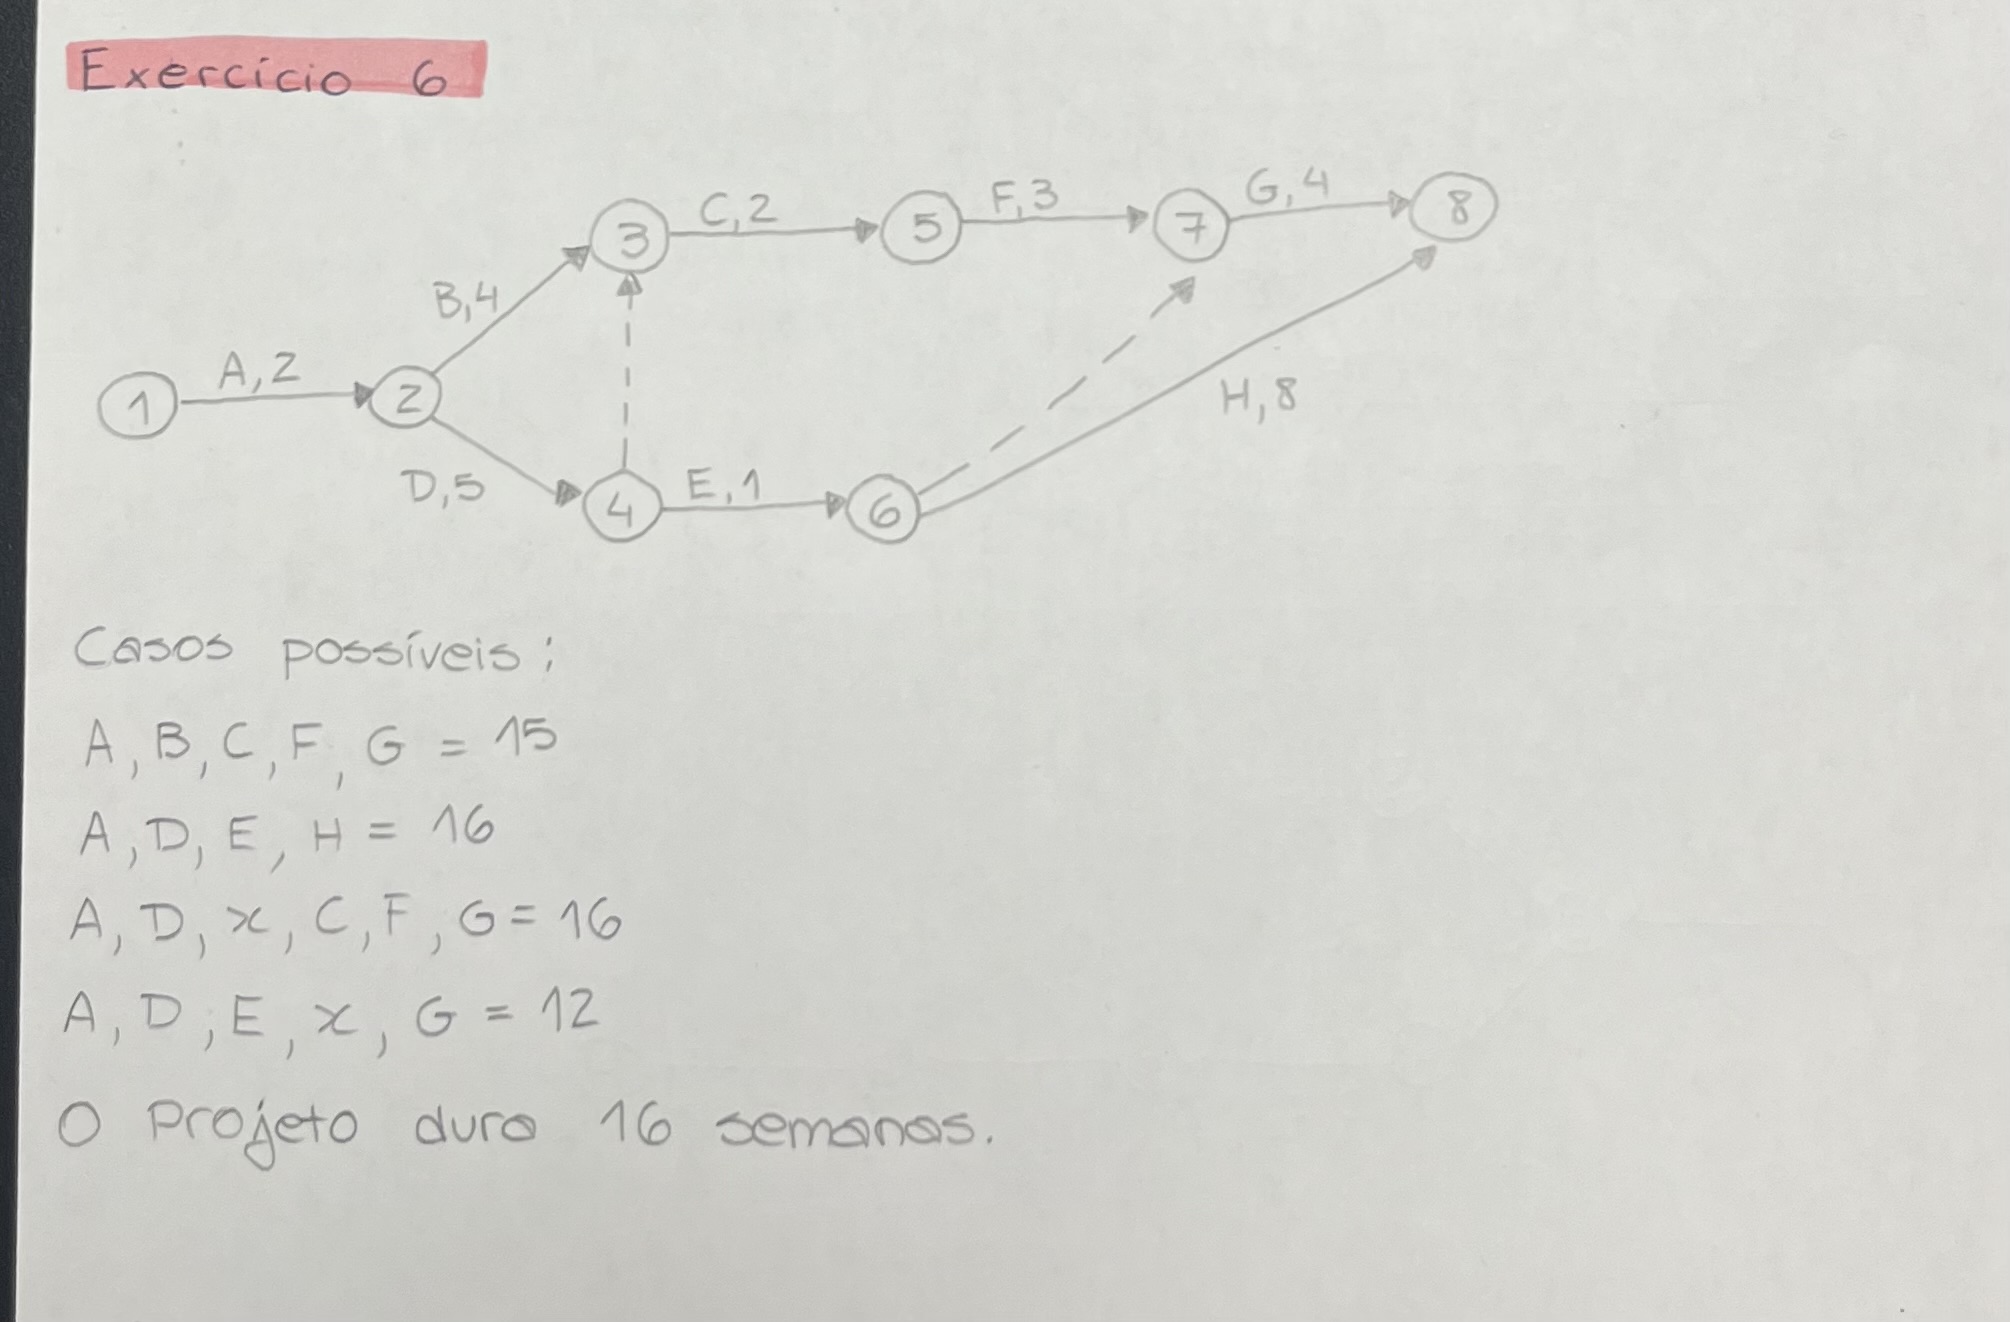 Exercício 6
3 C,2 5 F,3 7 G,4 8
B,4
1 A,2 2
H,8
D,5 4 E,1 6
Casos possíveis:
A, B, C, F, G = 15
A, D, E, H = 16
A, D, x, C, F, G = 16
A, D, E, x, G = 12
O Projeto dura 16 semanas.